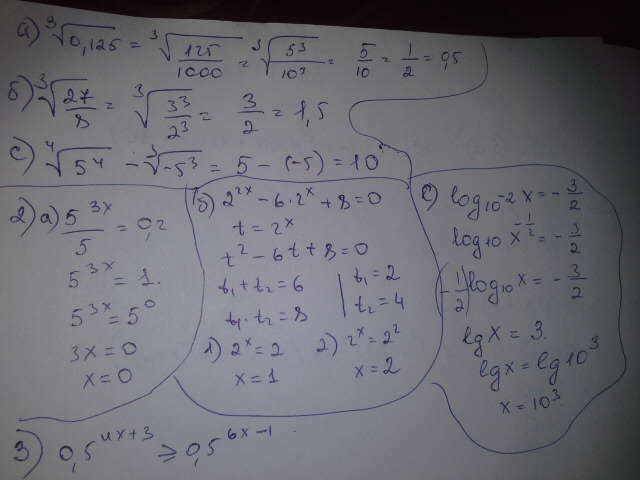 а) ³√0,125 = ³√(125/1000) = ³√(5³/10³) = 5/10 = 1/2 = 0,5
б) ³√(27/8) = ³√(3³/2³) = 3/2 = 1,5
с) ⁴√5⁴ - ³√-5³ = 5 - (-5) = 10
2) а) 5^(3x)/5 = 0,2
5^(3x) = 1
5^(3x) = 5⁰
3x = 0
x = 0
б) 2^(2x) - 6·2^x + 8 = 0
t = 2^x
t² - 6t + 8 = 0
t₁ + t₂ = 6 | t₁ = 2
t₁ · t₂ = 8 | t₂ = 4
1) 2^x = 2 2) 2^x = 2²
x = 1 x = 2
с) log₁₀-2 x = -3/2
log₁₀ x^(-1/2) = -3/2
-1/2 log₁₀ x = -3/2
lg x = 3
lg x = lg 10³
x = 10³
3) 0,5^(4x+3) ≥ 0,5^(6x-1)